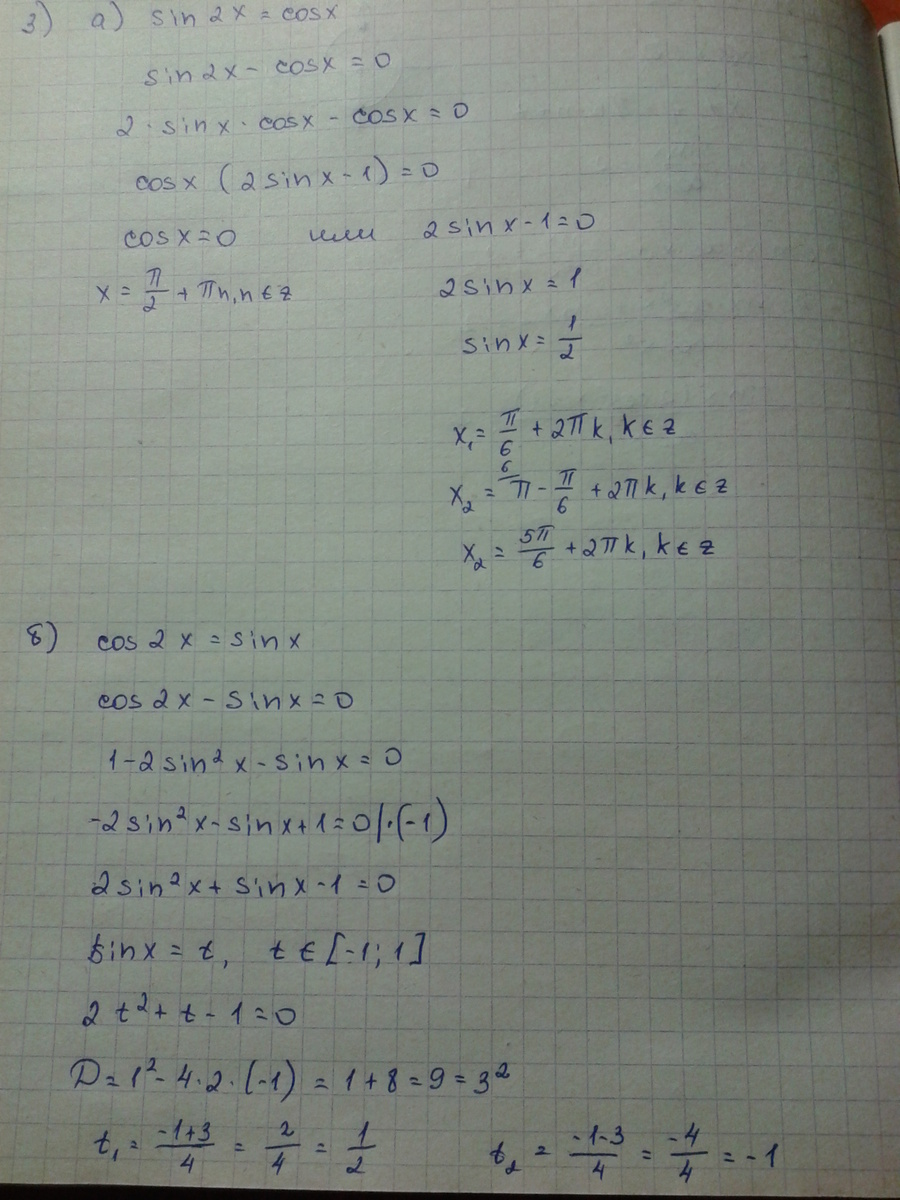 3) а) sin 2x = cosx
sin 2x - cosx = 0
2 · sinx · cosx - cosx = 0
cosx (2 sinx - 1) = 0
cosx = 0 или 2 sinx - 1 = 0
x = π/2 + πn, n ∈ z 2 sinx = 1
sinx = 1/2
x₁ = π/6 + 2πk, k ∈ z
x₂ = ⁶⁄π - π/6 + 2πk, k ∈ z
x₂ = 5π/6 + 2πk, k ∈ z
б) cos 2x = sinx
cos 2x - sinx = 0
1 - 2 sin² x - sinx = 0
-2 sin² x - sinx + 1 = 0 | · (-1)
2 sin² x + sinx - 1 = 0
sinx = t, t ∈ [-1; 1]
2 t² + t - 1 = 0
D = 1² - 4 · 2 · (-1) = 1 + 8 = 9 = 3²
t₁ = (-1+3)/4 = 2/4 = 1/2 t₂ = (-1-3)/4 = -4/4 = -1